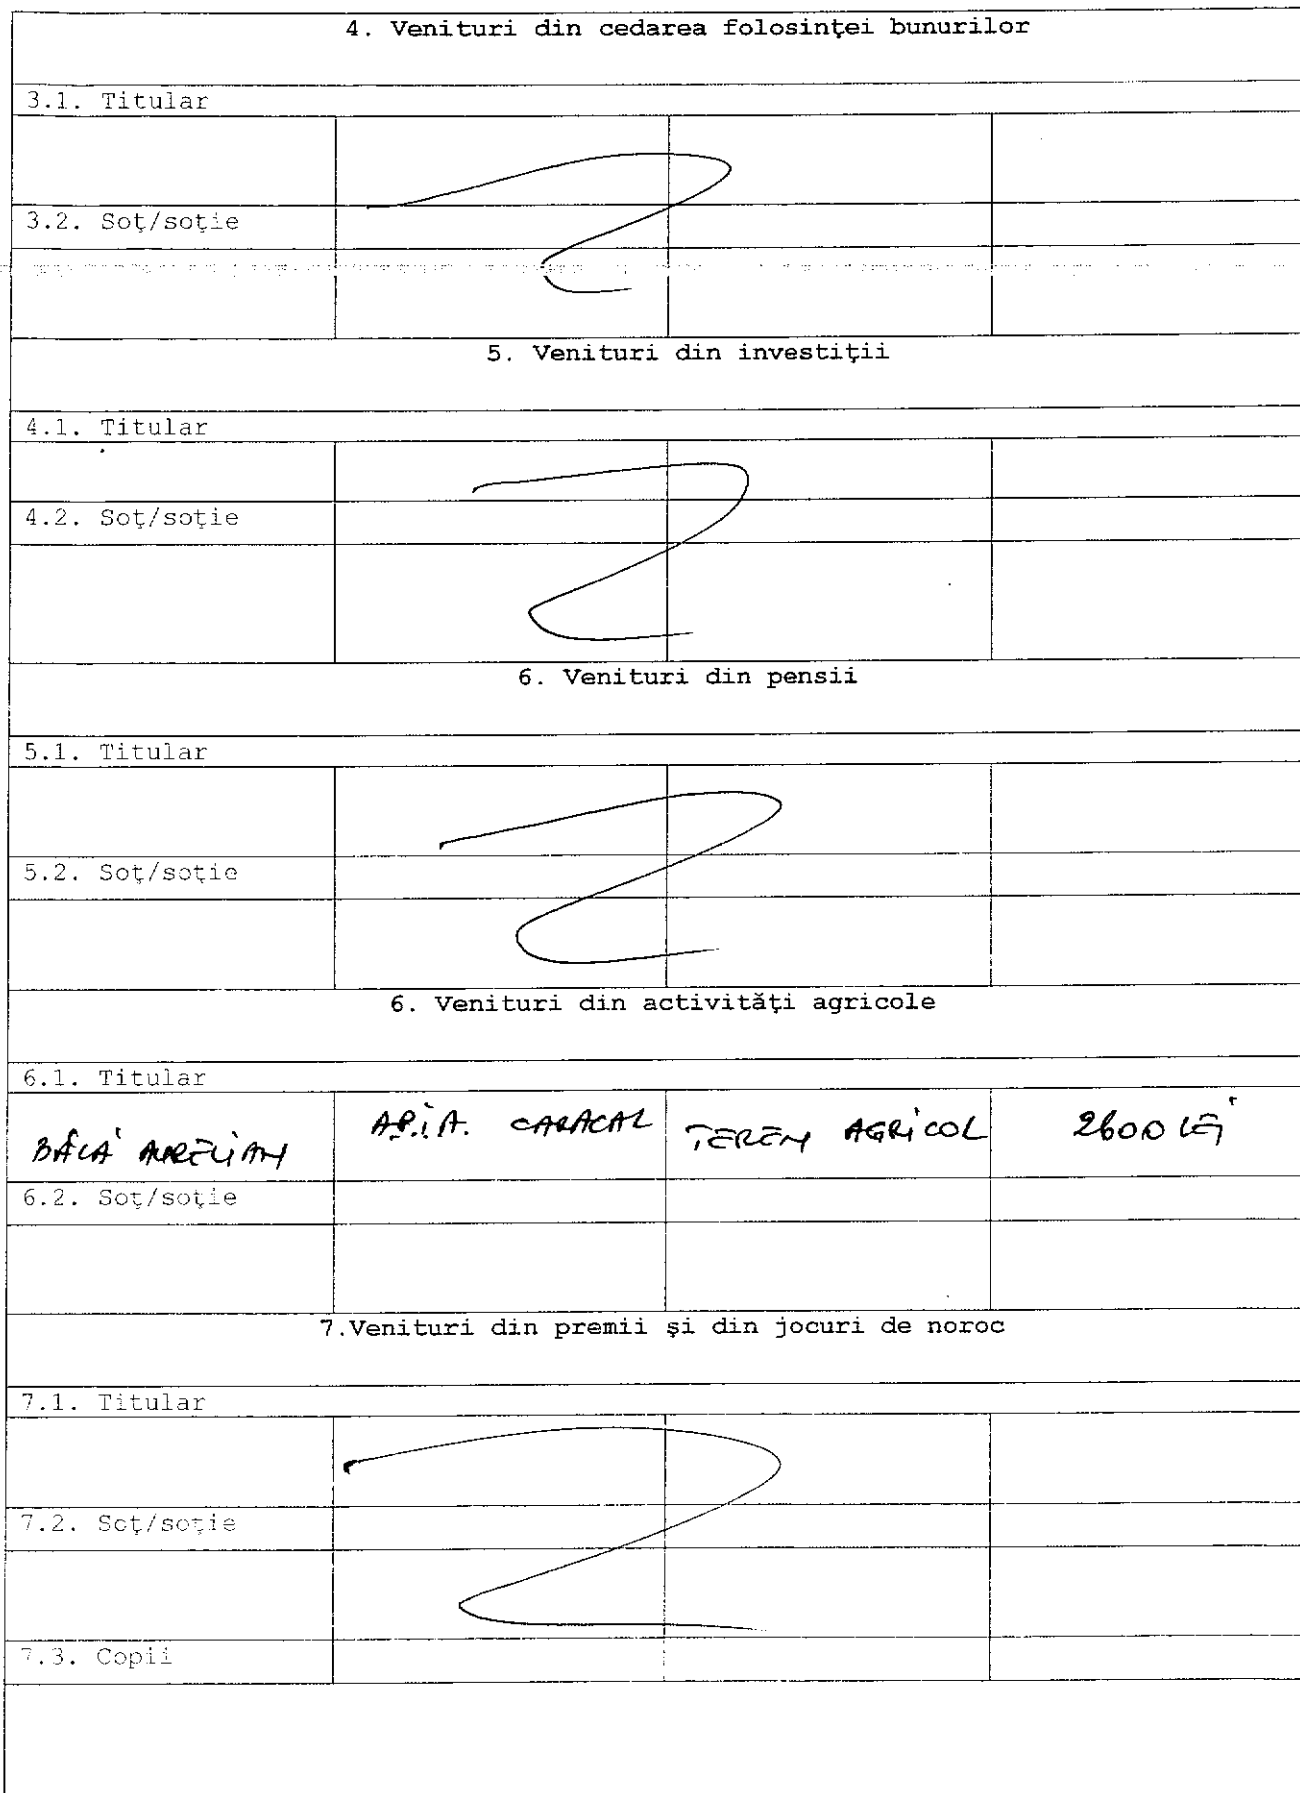 4. Venituri din cedarea folosinţei bunurilor
3.1. Titular
3.2. Soţ/soţie
5. Venituri din investiţii
4.1. Titular
4.2. Soţ/soţie
6. Venituri din pensii
5.1. Titular
5.2. Soţ/soţie
6. Venituri din activităţi agricole
6.1. Titular
BÂLĂ AURELIAN A.P.I.A. CARACAL TEREN AGRICOL 2600 LEI
6.2. Soţ/soţie
7.Venituri din premii şi din jocuri de noroc
7.1. Titular
7.2. Soţ/soţie
7.3. Copii